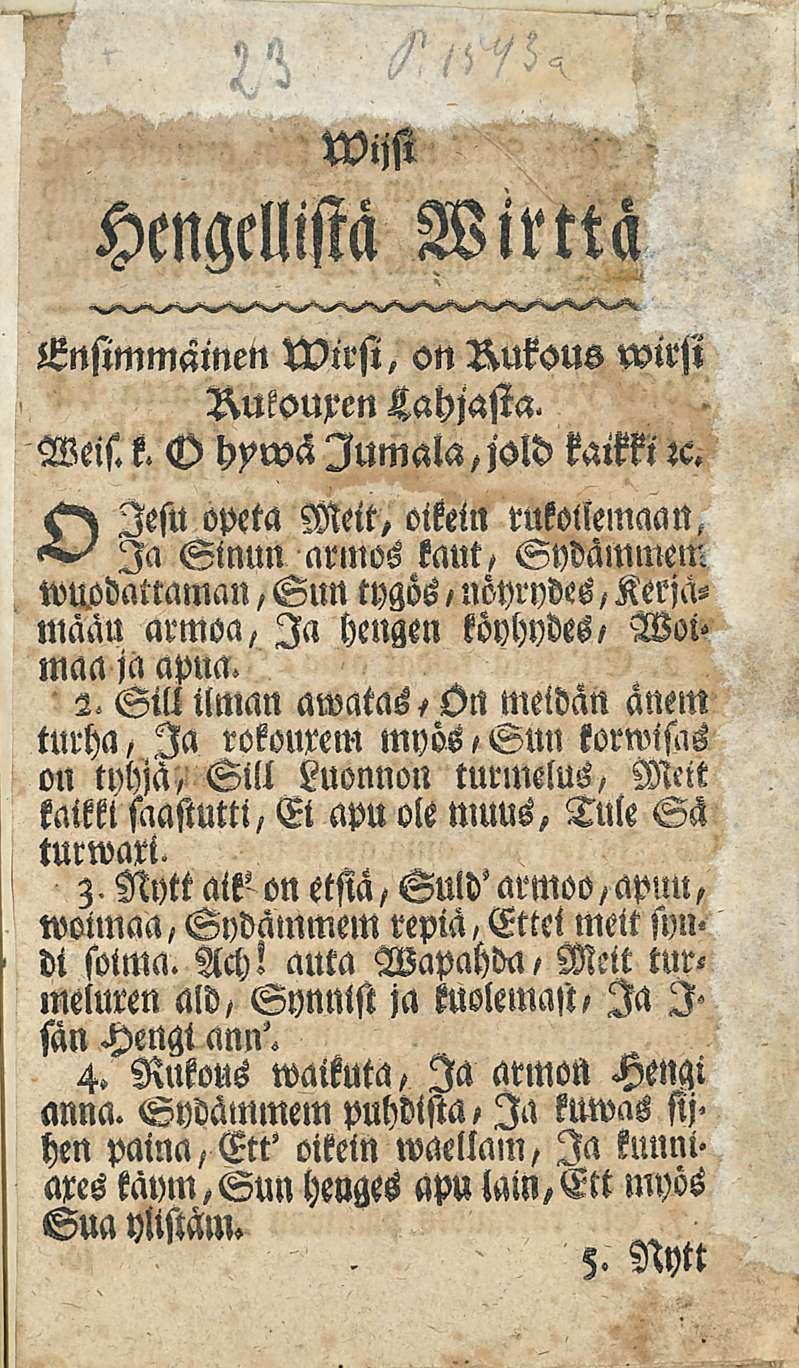 23 P. 1543a
Wijsi
Hengellistä Wirttä
Ensimmäinen Wirsi, on Rukous wirsi
Rukouxen Lahjasta.
Weis. k. O hywä Jumala, jold kaikki ꝛc.
O Jesu opeta Meit, oikein rukoilemaan,
Ja Sinun armos kaut, Sydämmem
wuodattaman, Sun tygös, nöyrydes, Kerjä-
mään armoa, Ja hengen köyhydes, Woi-
maa ja apua.
2. Sill ilman awatas, On meidän änem
turha, Ja rokouxem myös, Sun korwisas
on tyhjä, Sill Luonnon turmelus, Meit
kaikki saastutti, Ei apu ole muus, Tule Sä
turwaxi.
3. Nytt aik' on etsiä, Suld' armoo, apuu,
woimaa, Sydämmem repiä, Ettei meit syn-
di soima. Ach! auta Wapahda, Meit tur-
meluxen ald, Synnist ja kuolemast, Ja J-
sän Hengi ann'.
4. Rukous waikuta, Ja armon Hengi
anna. Sydämmem puhdista, Ja kuwas sij-
hen paina, Ett' oikein waellam, Ja kunni-
axes käym, Sun henges apu lain, Ett myös
Sua ylistäm.
5. Nytt